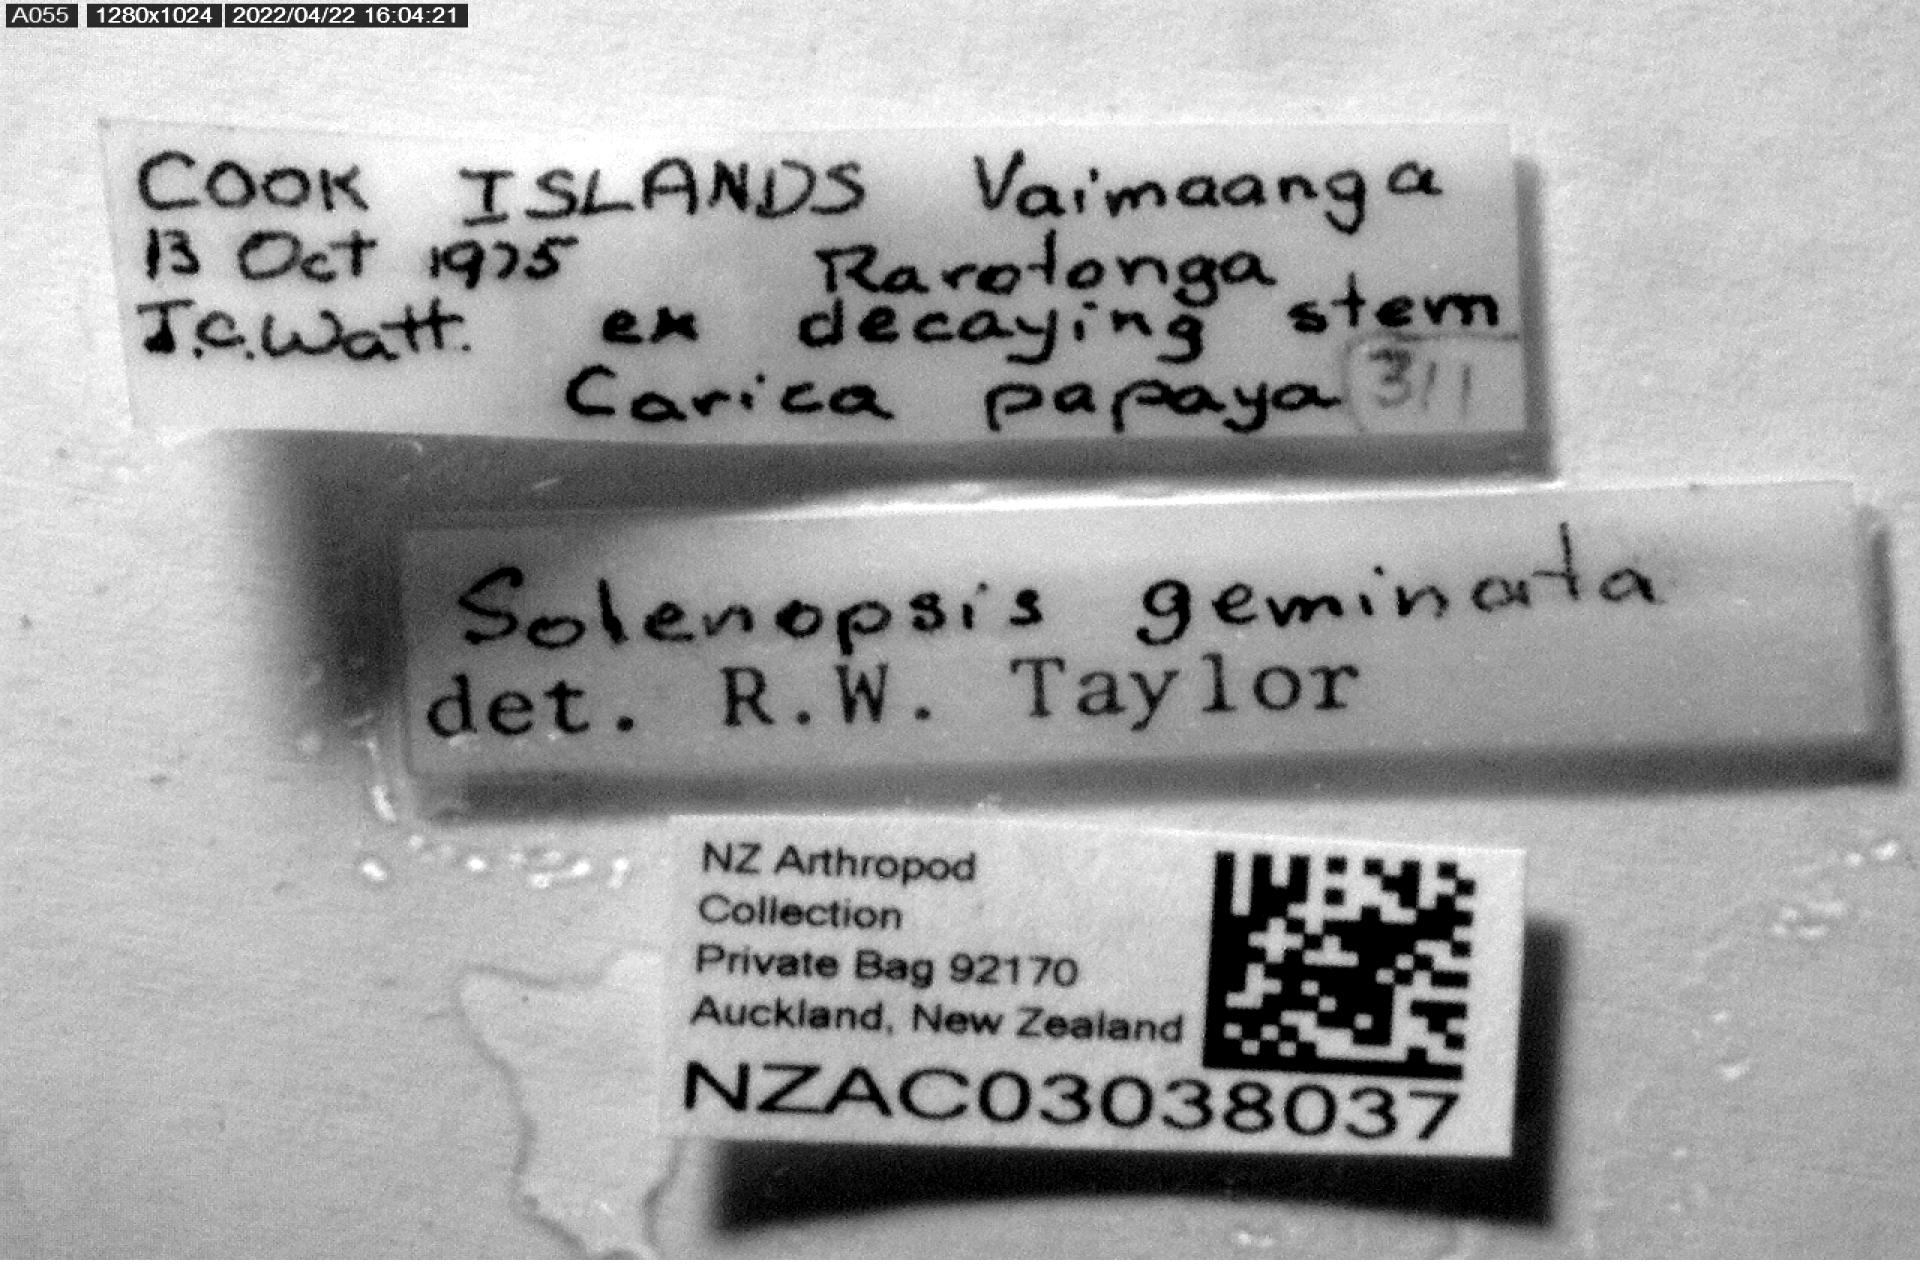 A055 1280x1024 2022/04/22 16:04:21
COOK ISLANDS Vaimaanga
13 Oct 1975 Rarotonga
J.C. Watt. ex decaying stem
Carica papaya 311
Solenopsis geminata
det. R.W. Taylor
NZ Arthropod
Collection
Private Bag 92170
Auckland, New Zealand
NZAC03038037